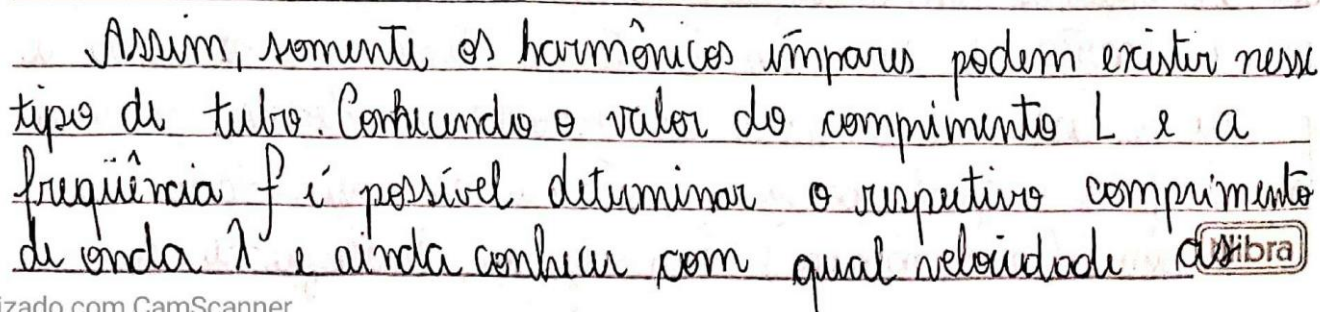 Assim, somente os harmônicos ímpares podem existir nesse
tipo de tubo. Conhecendo o valor do comprimento L e a
freqüência f é possível determinar o respectivo comprimento
de onda λ e ainda conhecer com qual velocidade as
izado com CamScanner